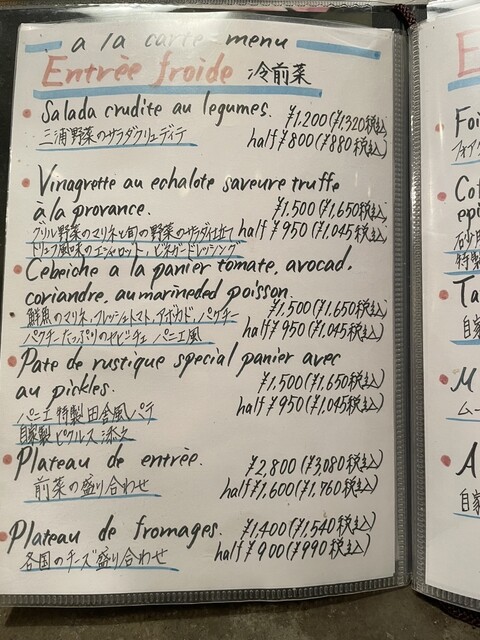 a la carte menu
Entrèe froide 冷前菜
Salada crudite au legumes. ¥1,200(¥1,320税込)
三浦野菜のサラダクリュディテ half¥800(¥880税込)
Vinagrette au echalote saveure truffe
à la provance. ¥1,500(¥1,650税込)
グリル野菜のマリネと旬の野菜のサラダ仕立て half¥950(¥1,045税込)
トリュフ風味のエシャロット、ビネガードレッシング
Cebeiche a la panier tomate, avocad,
coriandre, au marineded poisson. ¥1,500(¥1,650税込)
鮮魚のマリネ、フレッシュトマト、アボカド、パクチー half¥950(¥1,045税込)
パクチーたっぷりのセビーチェ パニエ風
Pate de rustique special panier avec
au pickles. ¥1,500(¥1,650税込)
パニエ特製田舎風パテ half¥950(¥1,045税込)
自家製ピクルス添え
Plateau de entrèe. ¥2,800(¥3,080税込)
前菜の盛り合わせ half¥1,600(¥1,760税込)
Plateau de fromages. ¥1,400(¥1,540税込)
各国のチーズ盛り合わせ half¥900(¥990税込)
E
Foi
フォアグ
Co
epi
砂肝
特製
Ta
自家
M
ムー
A
自家